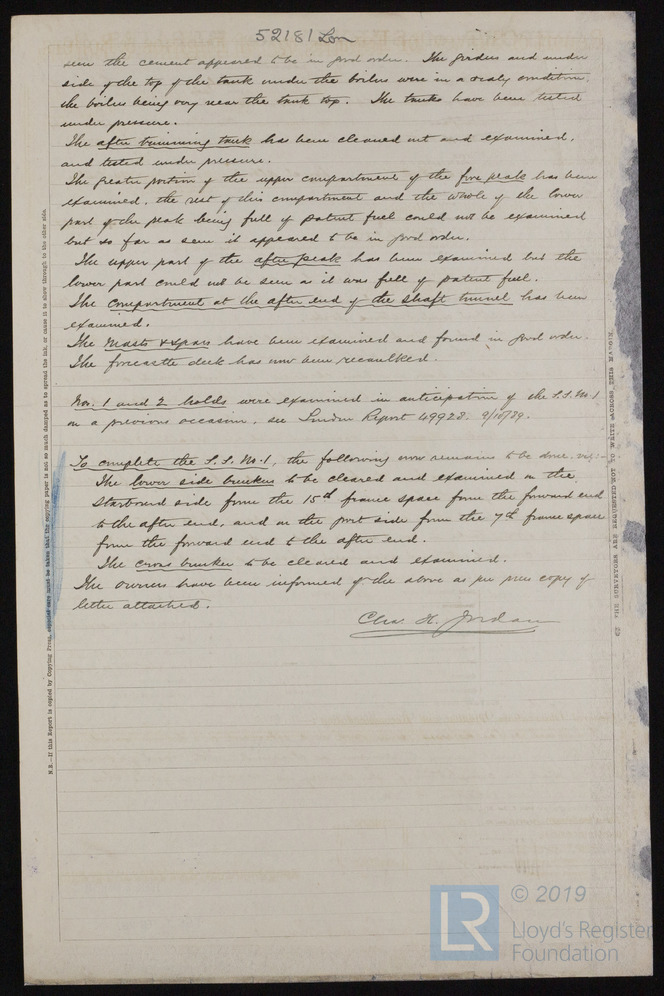 52181 Lon
seen the cement appeared to be in good order. The girders and under
side of the top of the tank under the boilers were in a scaly condition,
the boilers being very near the tank top. The tanks have been tested
under pressure.
The after trimming tank has been cleaned out and examined,
and tested under pressure.
The greater portion of the upper compartment of the fore peak has been
examined, the rest of this compartment and the whole of the lower
part of the peak being full of patent fuel could not be examined
but so far as seen it appeared to be in good order.
The upper part of the after peak has been examined but the
lower part could not be seen as it was full of patent fuel.
The compartment at the after end of the shaft tunnel has been
examined.
The Masts & Spars have been examined and found in good order.
The forecastle deck has now been recaulked.
Nos. 1 and 2 holds were examined in anticipation of the S.S. No. 1
on a previous occasion, see London Report 49928. 9/10/89.
To complete the S.S. No. 1, the following now remains to be done, viz:-
The lower side bunkers to be cleared and examined on the
starboard side from the 15th frame space from the forward end
to the after end, and on the port side from the 7th frame space
from the forward end to the after end.
The cross bunker to be cleared and examined.
The owners have been informed of the above as per press copy of
letter attached.
Chas. H. Jordan
N.B.—If this Report is copied by Copying Press, especial care must be taken that the copying paper is not so much damped as to spread the ink, or cause it to show through to the other side.
THE SURVEYORS ARE REQUESTED NOT TO WRITE ACROSS THIS MARGIN.
LR
© 2019
Lloyd's Register
Foundation